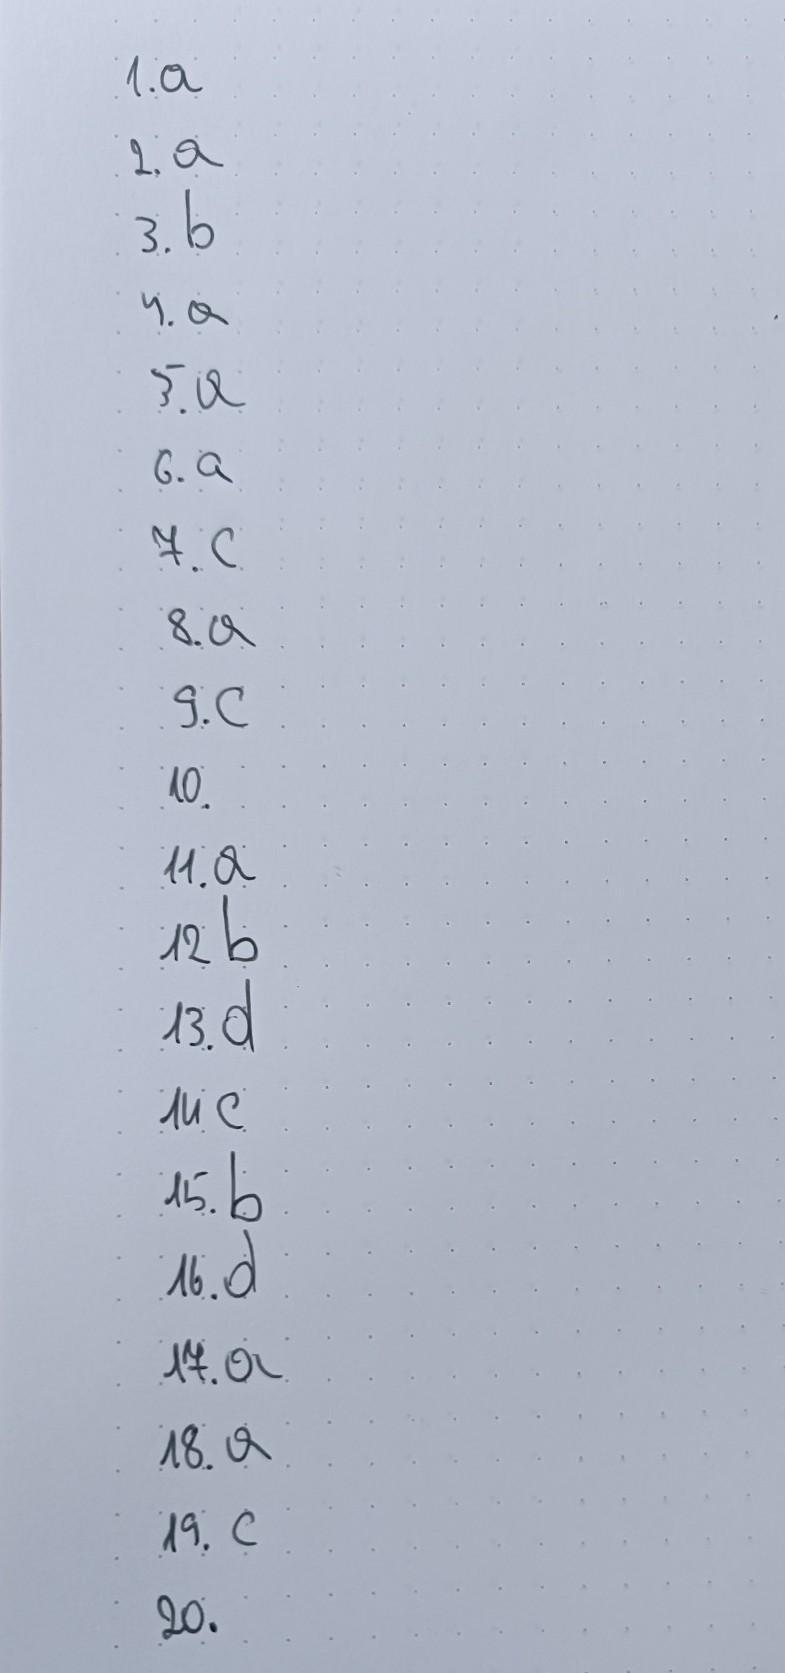 1.a
2.a
3.b
4.a
5.a
6.a
7.c
8.a
9.c
10.
11.a
12 b
13.d
14 c
15.b
16.d
17.a
18.a
19.c
20.